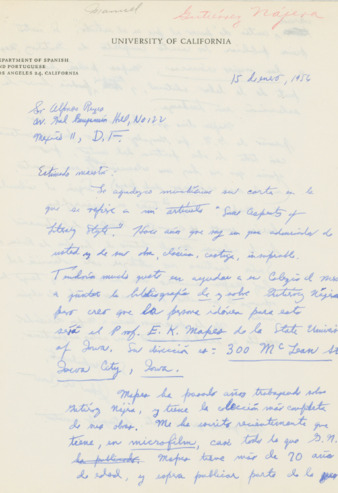 Manuel
Gutiérrez Nájera
UNIVERSITY OF CALIFORNIA
DEPARTMENT OF SPANISH
AND PORTUGUESE
LOS ANGELES 24, CALIFORNIA
15 de enero, 1956
Sr. Alfonso Reyes
Av. Gral. Benjamín Hill, No 122
Mexico 11, D. F.
Estimado maestro:
Le agradezco muchísimo su carta en la
que se refiere a mi artículo "Some Aspects of
Literary Style." Hace años que soy un gran admirador de
usted y de su obra, clásica, castiza, insuperable.
Tendría mucho gusto en ayudar a su Colegio el
a la bibliografía de y sobre Gutiérrez Nájera
pero creo que la persona idónea para esto
será el Prof. E. K. Mapes de la State
of Iowa. Su dirección es: 300 McLean St
Iowa City, Iowa.
Mapes ha pasado años trabajando sobre
Gutiérrez Nájera, y tiene la colección más completa
de sus obras. Me ha escrito recientemente que
tiene, en microfilm, casi todo lo que G. N.
ha publicado. Mapes tiene más de 70 años
de edad, y espera publicar parte de lo que